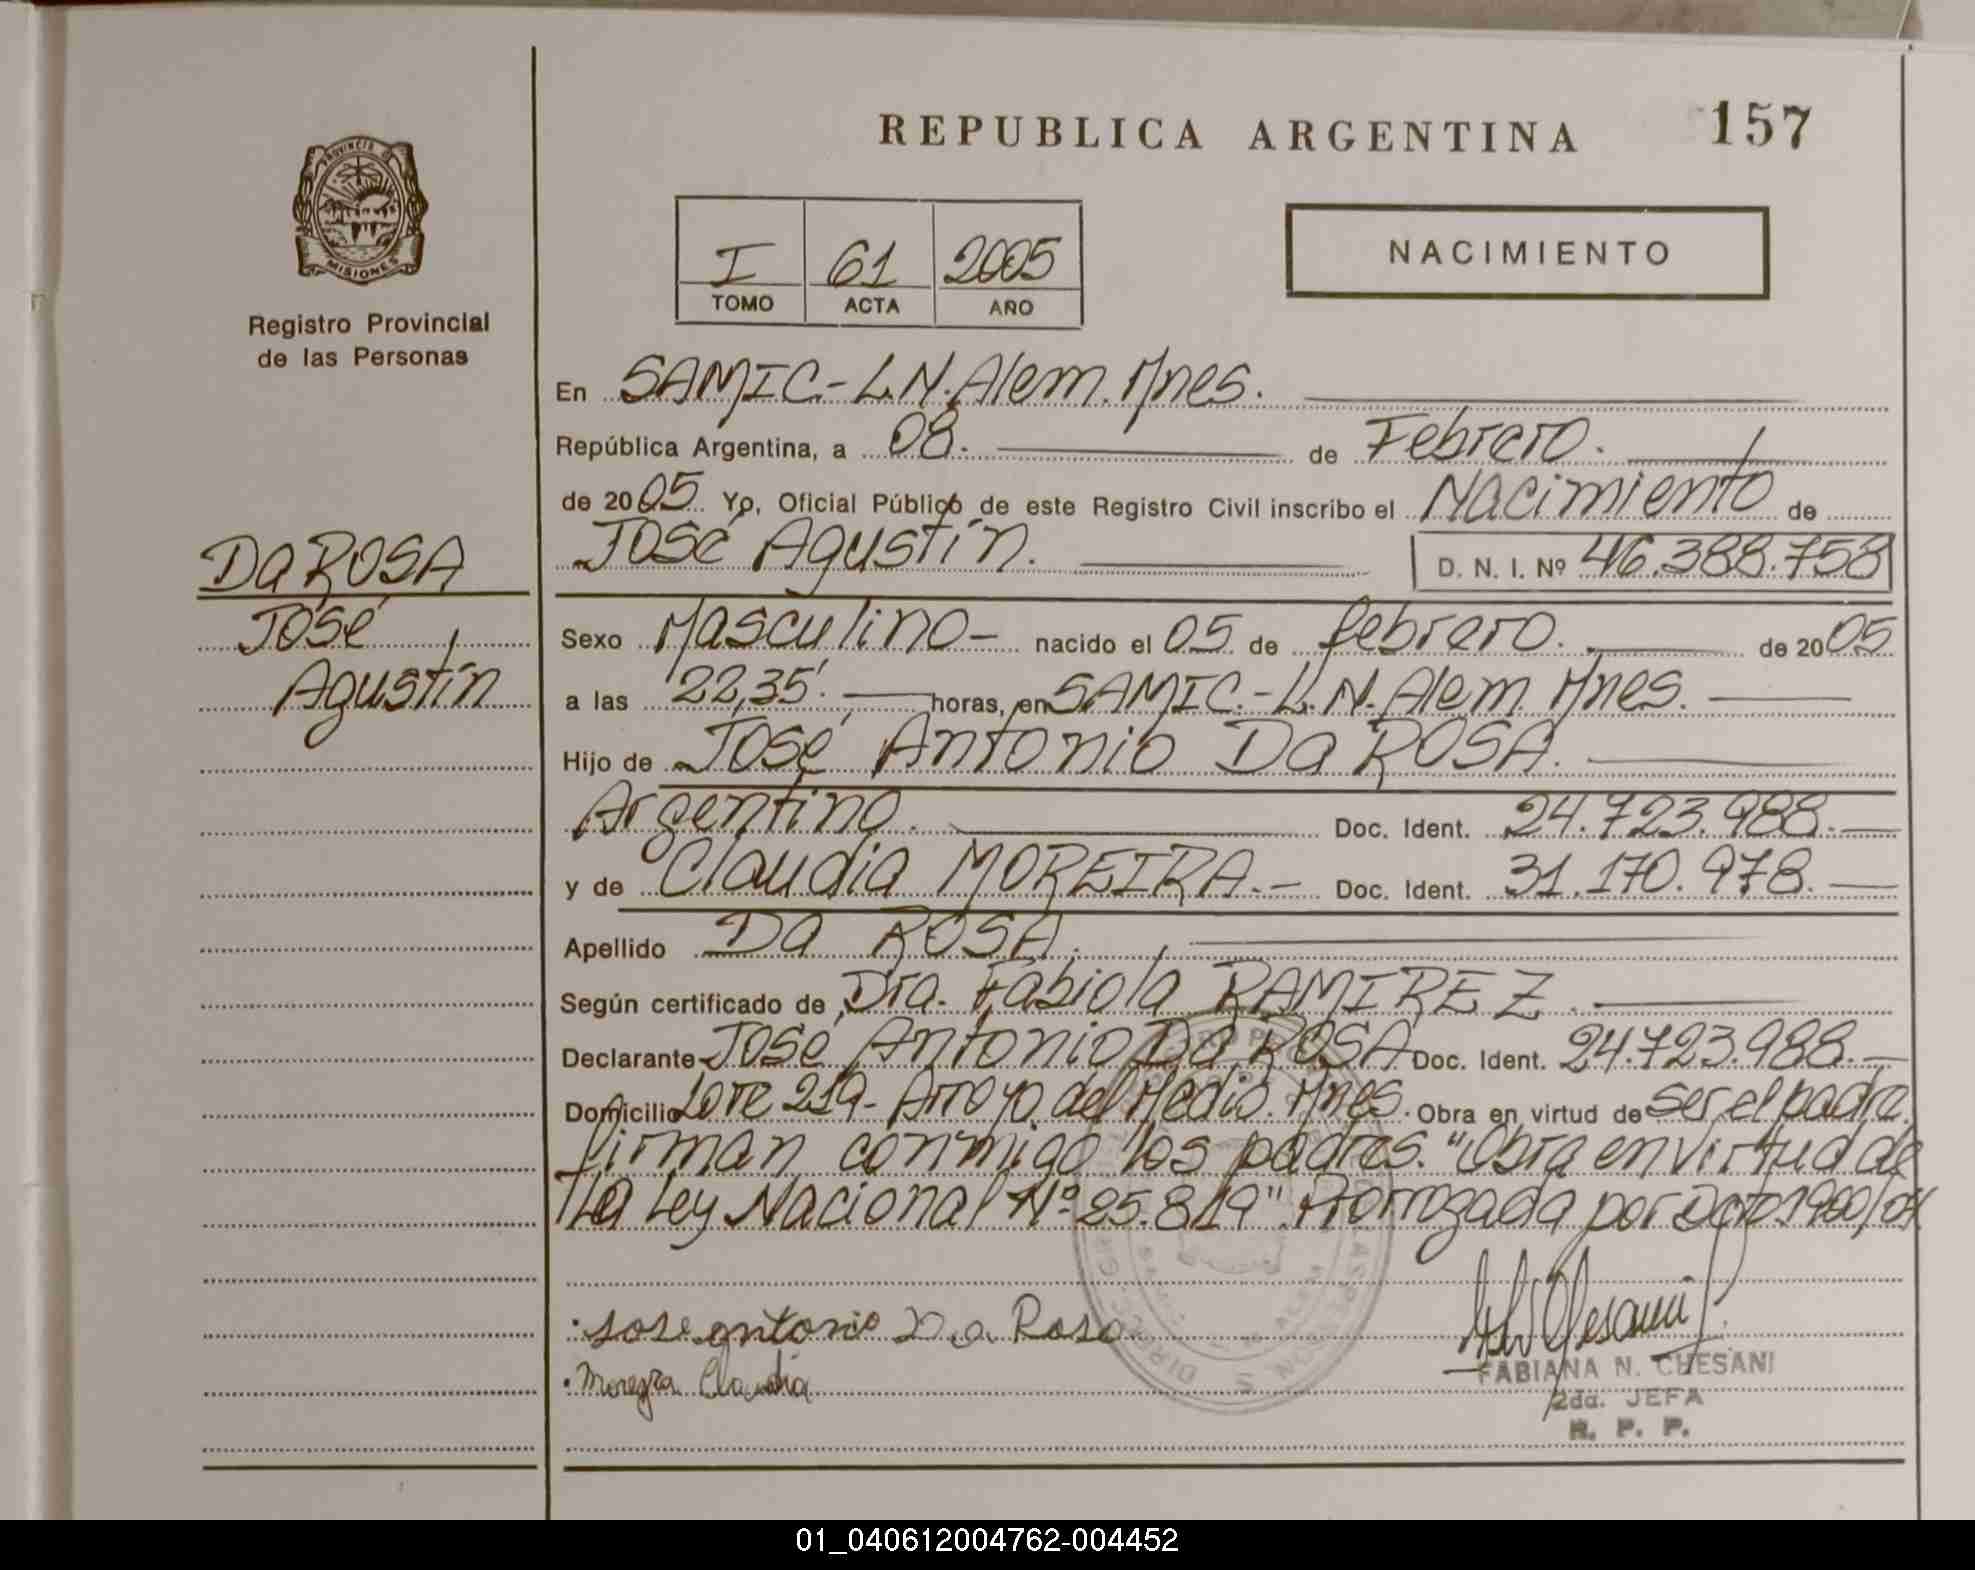 REPUBLICA ARGENTINA 157
PROVINCIA DE
MISIONES
Registro Provincial
de las Personas
I 61 2005
TOMO ACTA AÑO
NACIMIENTO
En SAMIC.-L.N.Alem.Mnes.
República Argentina, a 08. de Febrero.
de 2005. Yo, Oficial Público de este Registro Civil inscribo el Nacimiento de
José Agustín. D. N. I. Nº 46.388.758
Da ROSA
José
Agustín
Sexo Masculino- nacido el 05. de febrero. de 2005
a las 22,35'. horas, en SAMIC.-L.N.Alem.Mnes.
Hijo de José Antonio Da ROSA.
Argentino. Doc. Ident. 24.723.988.-
y de Claudia MOREIRA.- Doc. Ident. 31.170.978.-
Apellido Da ROSA.
Según certificado de Dra. Fabiola RAMIREZ.
Declarante José Antonio Da ROSA Doc. Ident. 24.723.988.-
Domicilio Lote 219- Arroyo del Medio. Mnes. Obra en virtud de ser el padre.
firman conmigo los padres. "Obra en virtud de
la Ley Nacional Nº 25.819" Prorrogada por Dcto 1900/04
Jose antonio Da Rosa
Moreyra Claudia
FABIANA N. CHESANI
2da. JEFA
R. P. P.
01_040612004762-004452